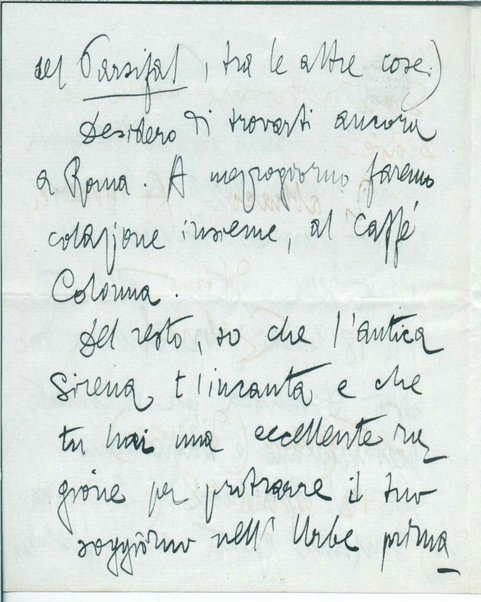 del Parsifal, tra le altre cose.)
Desidero di trovarti ancora
a Roma. A mezzogiorno faremo
colazione insieme, al Caffé
Colonna.
Del resto, so che l'antica
Sirena t'incanta e che
tu hai una eccellente ra
gione per protrarre il tuo
soggiorno nell' Urbe prima